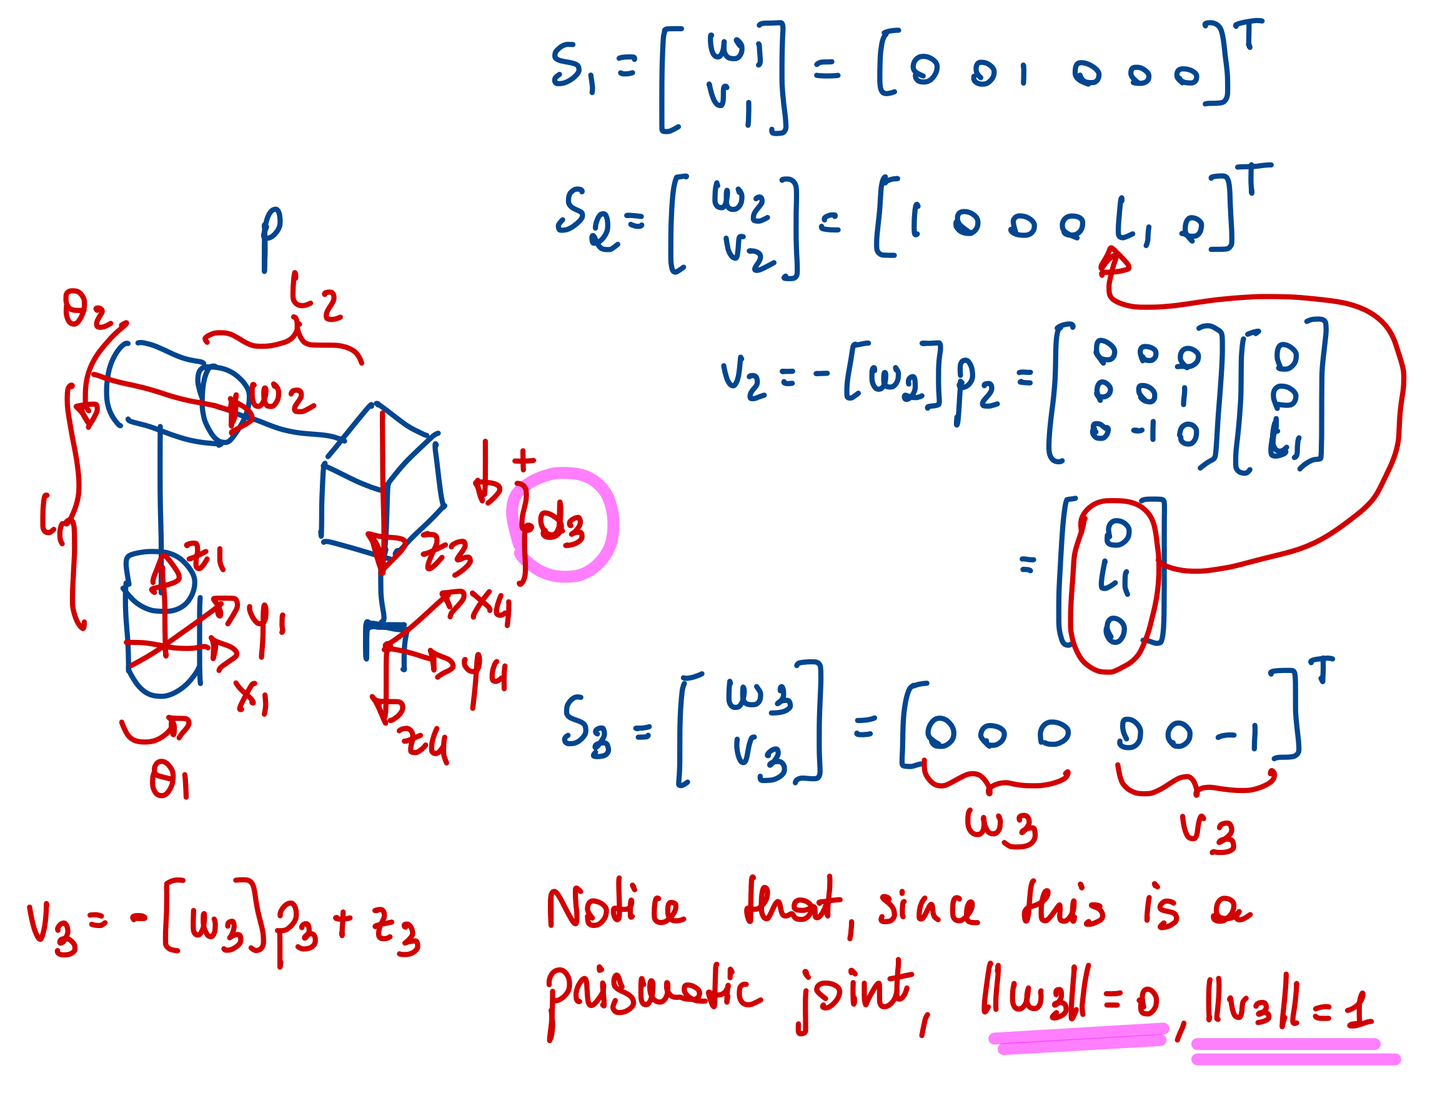 S₁ = [ω₁ v₁] = [0 0 1 0 0 0]ᵀ
S₂ = [ω₂ v₂] = [1 0 0 0 L₁ 0]ᵀ
v₂ = -[ω₂]p₂ = [0 0 0; 0 0 1; 0 -1 0] [0; 0; L₁]
= [0; L₁; 0]
S₃ = [ω₃ v₃] = [0 0 0 0 0 -1]ᵀ
ω₃ v₃
p
L₂
θ₂
ω₂
L₁
+
d₃
z₁
z₃
y₁
x₁
x₄
y₄
z₄
θ₁
v₃ = -[ω₃]p₃ + z₃
Notice that, since this is a
prismatic joint, ||ω₃|| = 0, ||v₃|| = 1